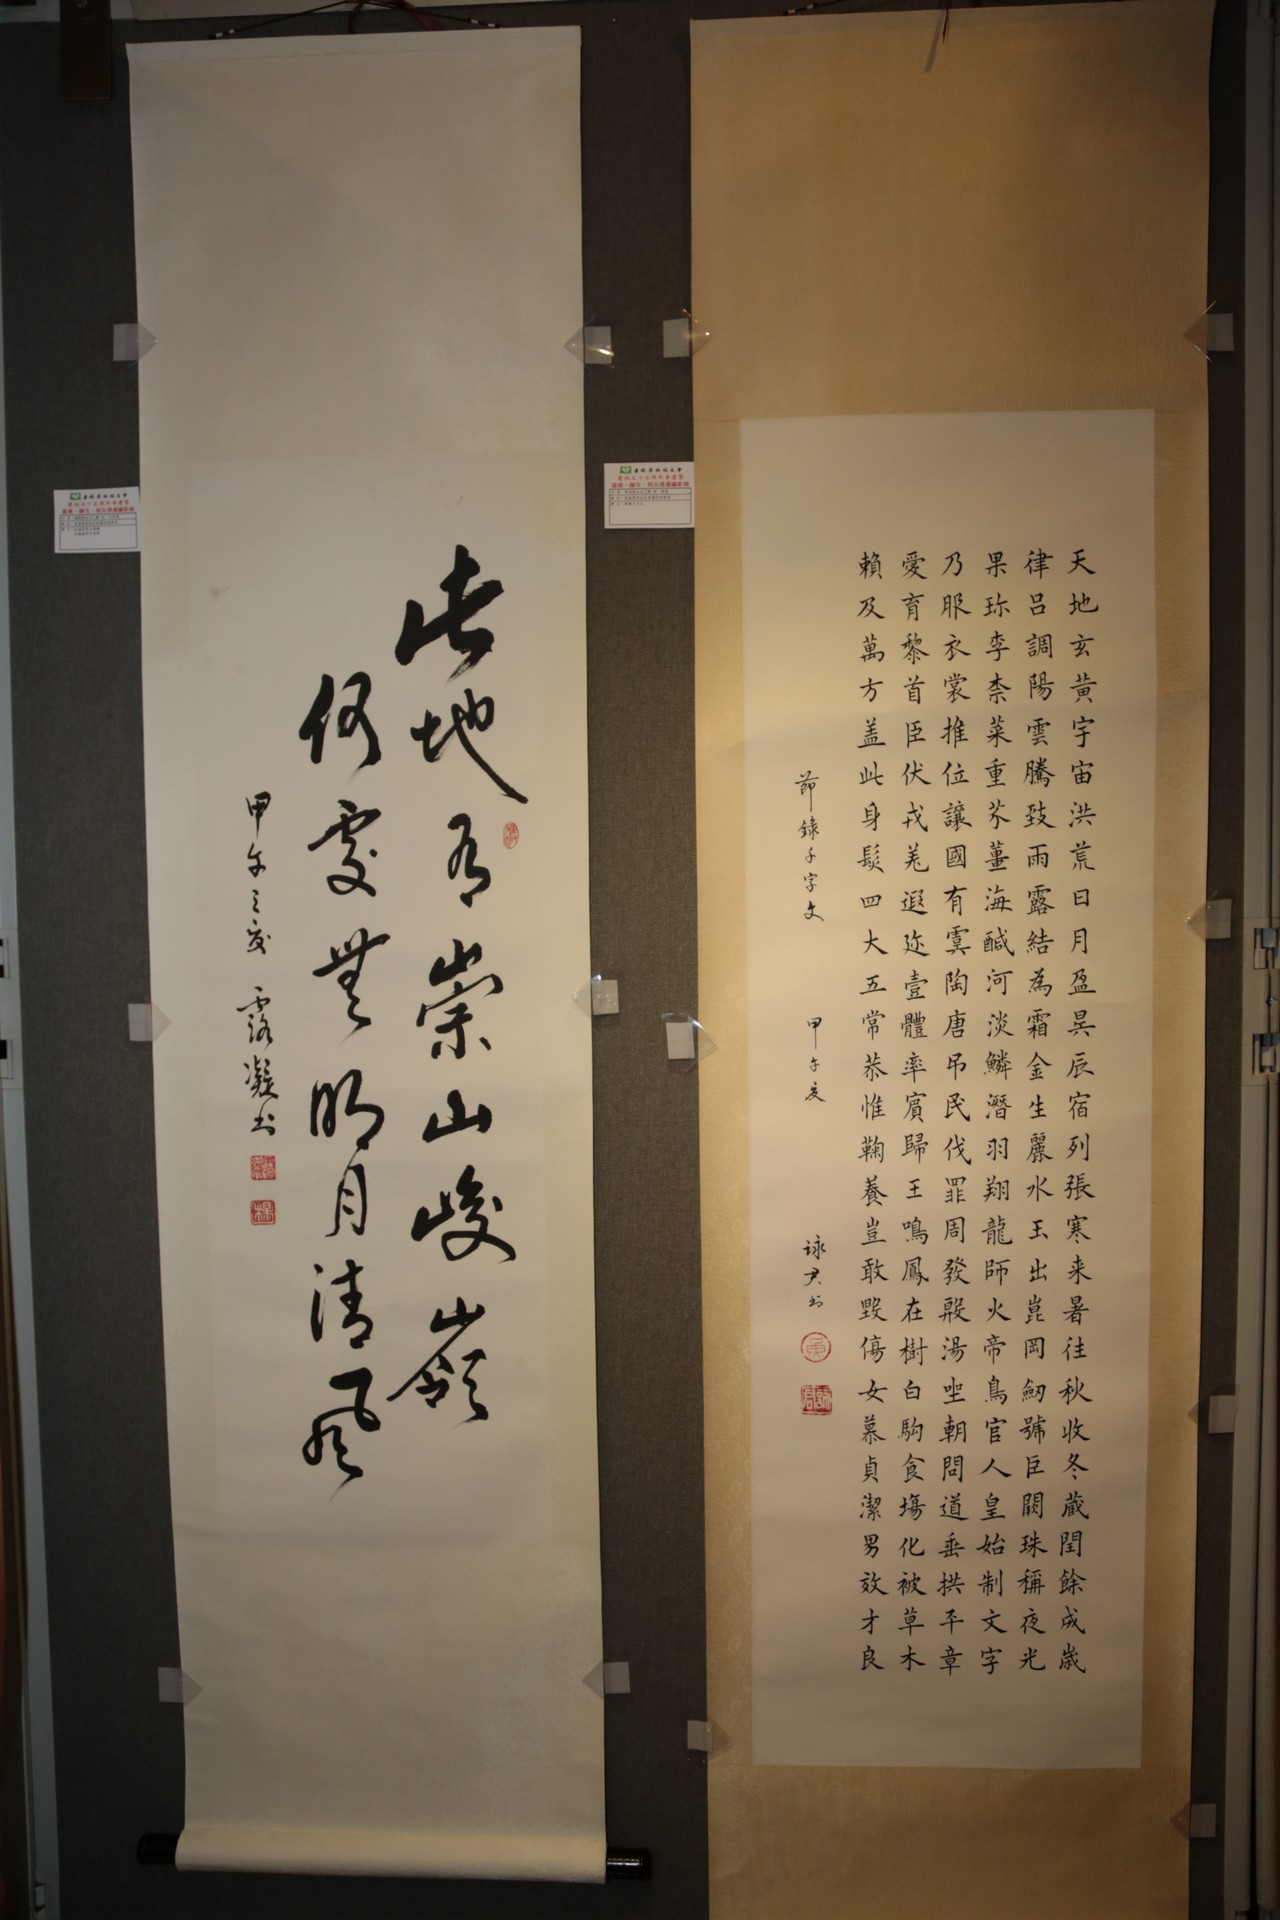 天地玄黄宇宙洪荒日月盈昃辰宿列張寒来暑往秋收冬蔵閏餘成歲
律吕調陽雲騰致雨露結為霜金生麗水玉出崑岡劒號巨闕珠稱夜光
果珎李柰菜重芥薑海鹹河淡鱗潛羽翔龍師火帝鳥官人皇始制文字
乃服衣裳推位讓國有虞陶唐吊民伐罪周發殷湯坐朝問道垂拱平章
愛育黎首臣伏戎羌遐迩壹體率賓歸王鳴鳳在樹白駒食場化被草木
賴及萬方盖此身髮四大五常恭惟鞠養豈敢毀傷女慕貞潔男效才良
節錄千字文 甲午夏 詠尹书
此地有崇山峻嶺
何處無明月清風
甲午之夏 露凝书